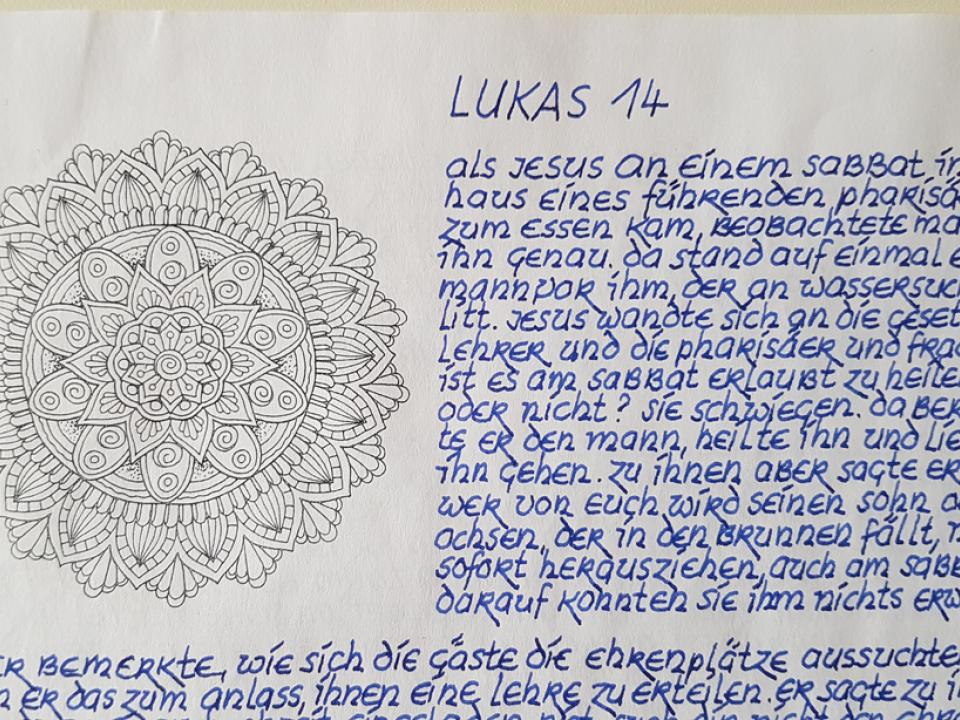 LUKAS 14
als JESUS an einem saBBat in
haus eines führenden pharisä
zum Essen kam, BEOBachtete ma
ihn genau. da stand auf einmal e
mann vor ihm, dER an wassERsuc
litt. JESUS wandte sich an die gEset
LehRER und die phaRisäER und fRag
ist es am saBBat ERlauBt zu heile
odER nicht? sie schwiegen. da BER
te ER den mann, heilte ihn und lie
ihn gehen. zu ihnen aBER sagte ER
wER von Euch wird seinen sohn od
ochsen, dER in den BRunnen fällt, n
sofoRt hERausziehen, auch am saBB
daRauf konnten sie ihm nichts ERw
ER BEmERkte, wie sich die gäste die ehREnplätze aussuchte
ER das zum anlass, ihnen eine LehRE zu ERteilen. ER sagte zu i